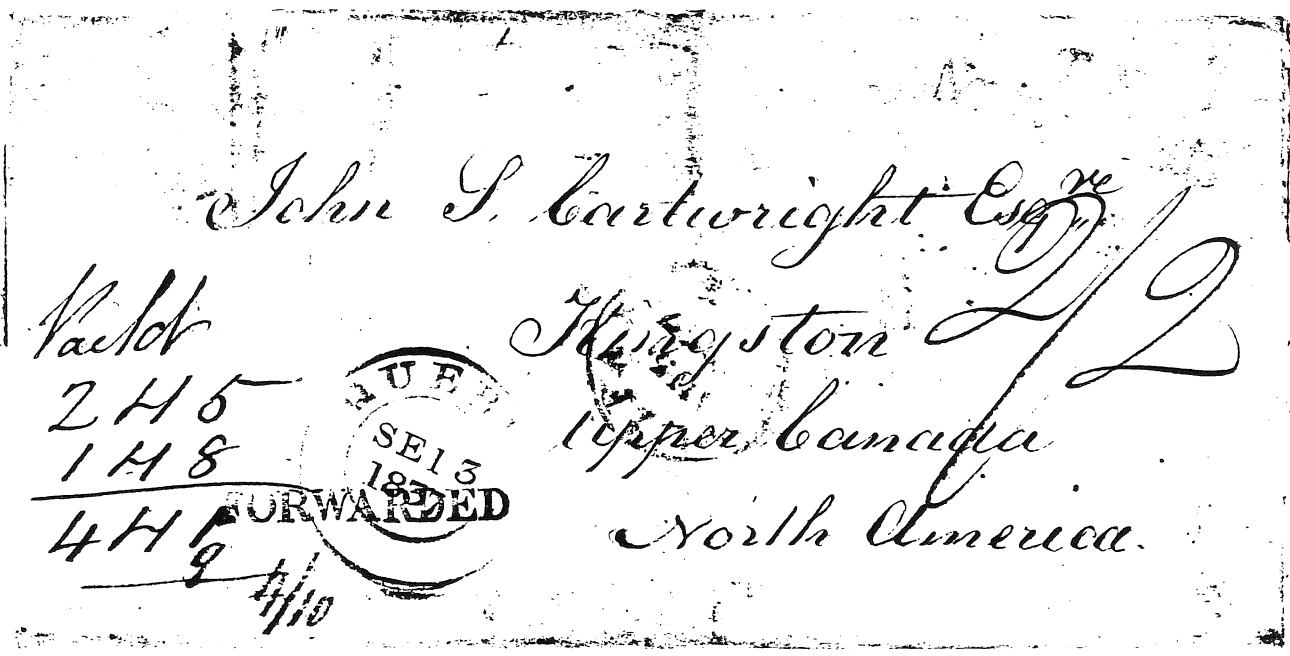 John S. Cartwright Esqre
2/2
Kingston
Upper Canada
North America.
2 H 5
1 H 8
4 H 1
9
4/10
QUEB
SE 13
FORWARDED